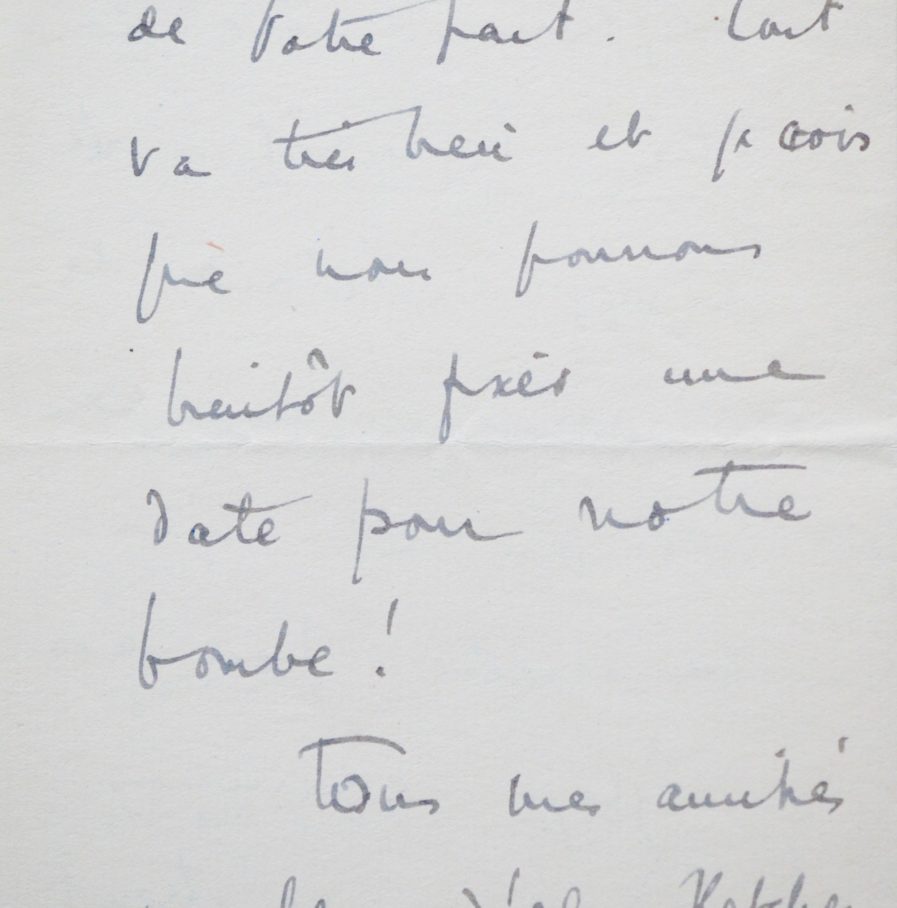 de votre part. Tout
va très bien et je crois
que nous pourrons
bientôt fixer une
date pour notre
bombe !
Tous mes amitiés